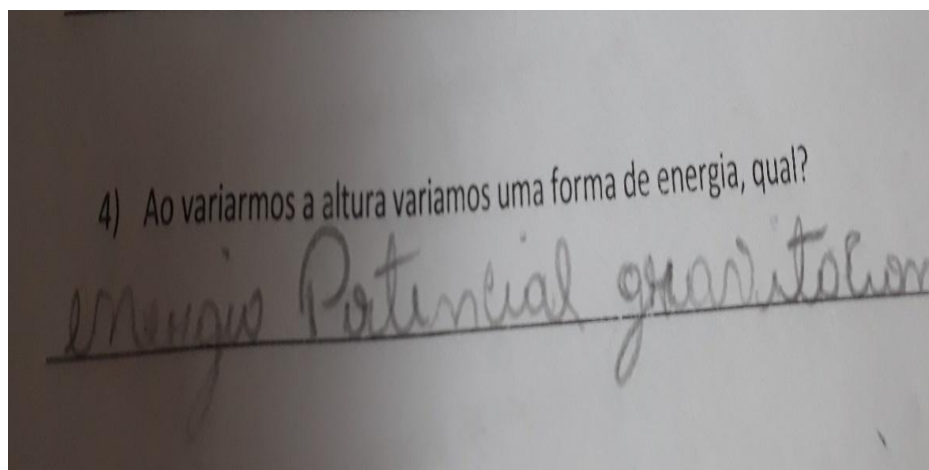 4) Ao variarmos a altura variamos uma forma de energia, qual?
energia Potencial gravitacion